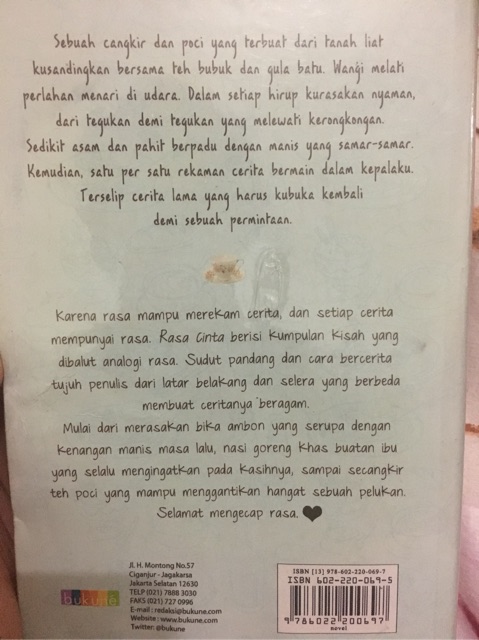 Sebuah cangkir dan poci yang terbuat dari tanah liat
kusandingkan bersama teh bubuk dan gula batu. Wangi melati
perlahan menari di udara. Dalam setiap hirup kurasakan nyaman,
dari tegukan demi tegukan yang melewati kerongkongan.
Sedikit asam dan pahit berpadu dengan manis yang samar-samar.
Kemudian, satu per satu rekaman cerita bermain dalam kepalaku.
Terselip cerita lama yang harus kubuka kembali
demi sebuah permintaan.
Karena rasa mampu merekam cerita, dan setiap cerita
mempunyai rasa. Rasa Cinta berisi kumpulan kisah yang
dibalut analogi rasa. Sudut pandang dan cara bercerita
tujuh penulis dari latar belakang dan selera yang berbeda
membuat ceritanya beragam.
Mulai dari merasakan bika ambon yang serupa dengan
kenangan manis masa lalu, nasi goreng khas buatan ibu
yang selalu mengingatkan pada kasihnya, sampai secangkir
teh poci yang mampu menggantikan hangat sebuah pelukan.
Selamat mengecap rasa.
bukune
Jl. H. Montong No.57
Ciganjur - Jagakarsa
Jakarta Selatan 12630
TELP (021) 7888 3030
FAKS (021) 727 0996
E-mail : redaksi@bukune.com
Website : www.bukune.com
Twitter: @bukune
ISBN [13] 978-602-220-069-7
ISBN 602-220-069-5
9 786022 200697
novel